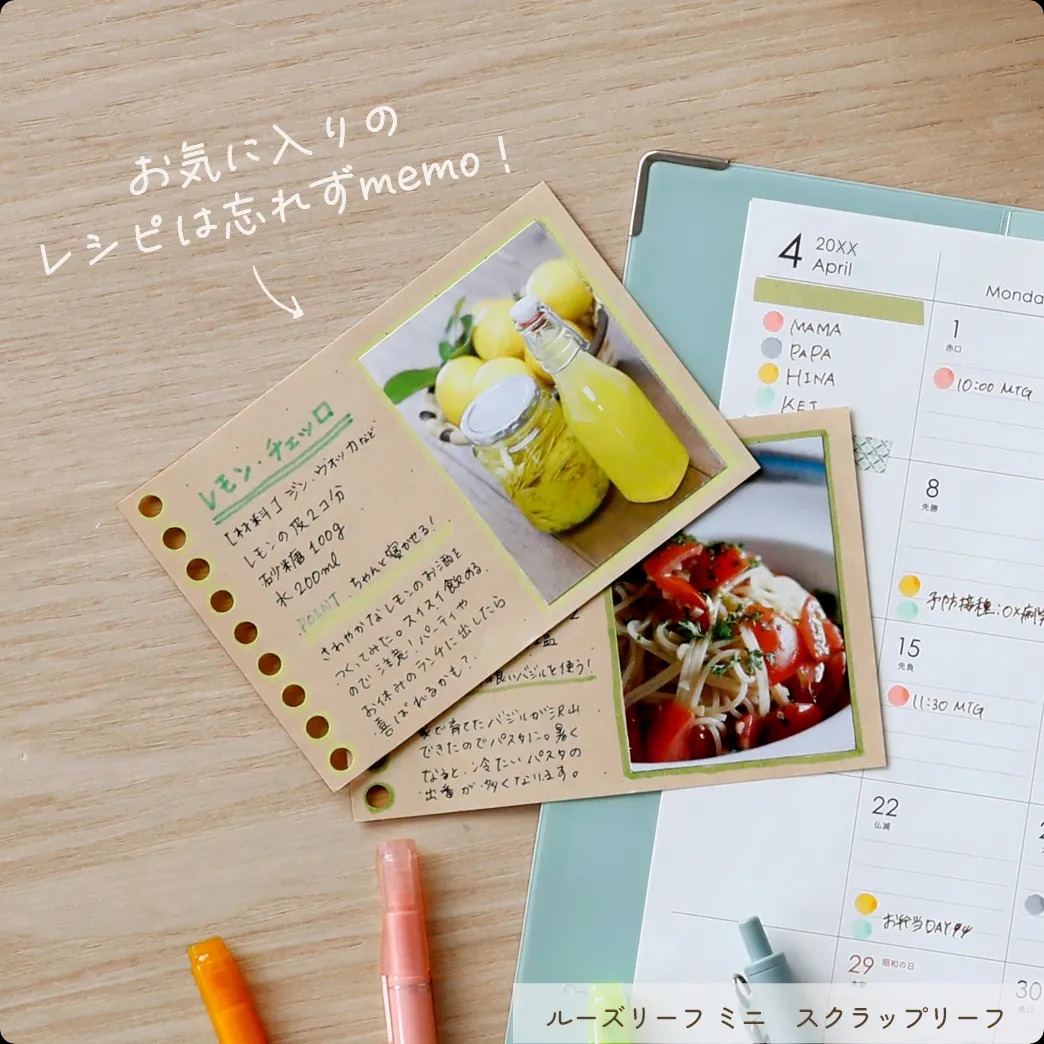 お気に入りの
レシピは忘れずmemo！
レモン・チェッロ
［材料］ジン・ウオッカなど
レモンの皮2コ分
砂糖 100g
水 200ml
POINT ちゃんと寝かせる！
さわやかなレモンのお酒を
つくってみた。スイスイ飲める
ので注意！パーティや
お休みのランチに出したら
喜ばれるかも？
良いバジルを使う！
家で育てたバジルが沢山
できたのでパスタに。暑く
なると、冷たいパスタの
出番が多くなります。
4
20XX
April
MAMA
PAPA
HINA
KEI
Monda
1
赤口
10:00 MTG
8
先勝
予防接種:〇×病院
15
先負
11:30 MTG
22
仏滅
お弁当DAY
29 昭和の日
30
赤口
ルーズリーフ ミニ　スクラップリーフ